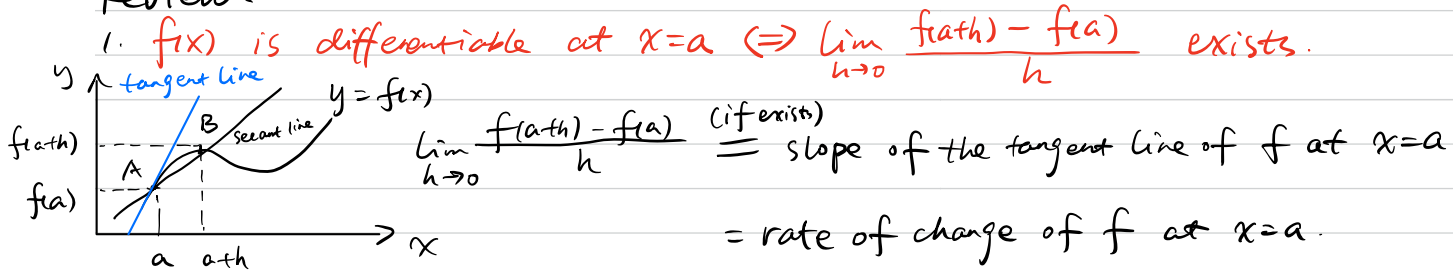 review.
1. f(x) is differentiable at x=a ⟺ lim h→0 f(a+h) − f(a) / h exists.
y
tangent line
y = f(x)
B
secant line
f(a+h)
A
f(a)
a
a+h
x
lim h→0 f(a+h) − f(a) / h (if exists) = slope of the tangent line of f at x=a
= rate of change of f at x=a.